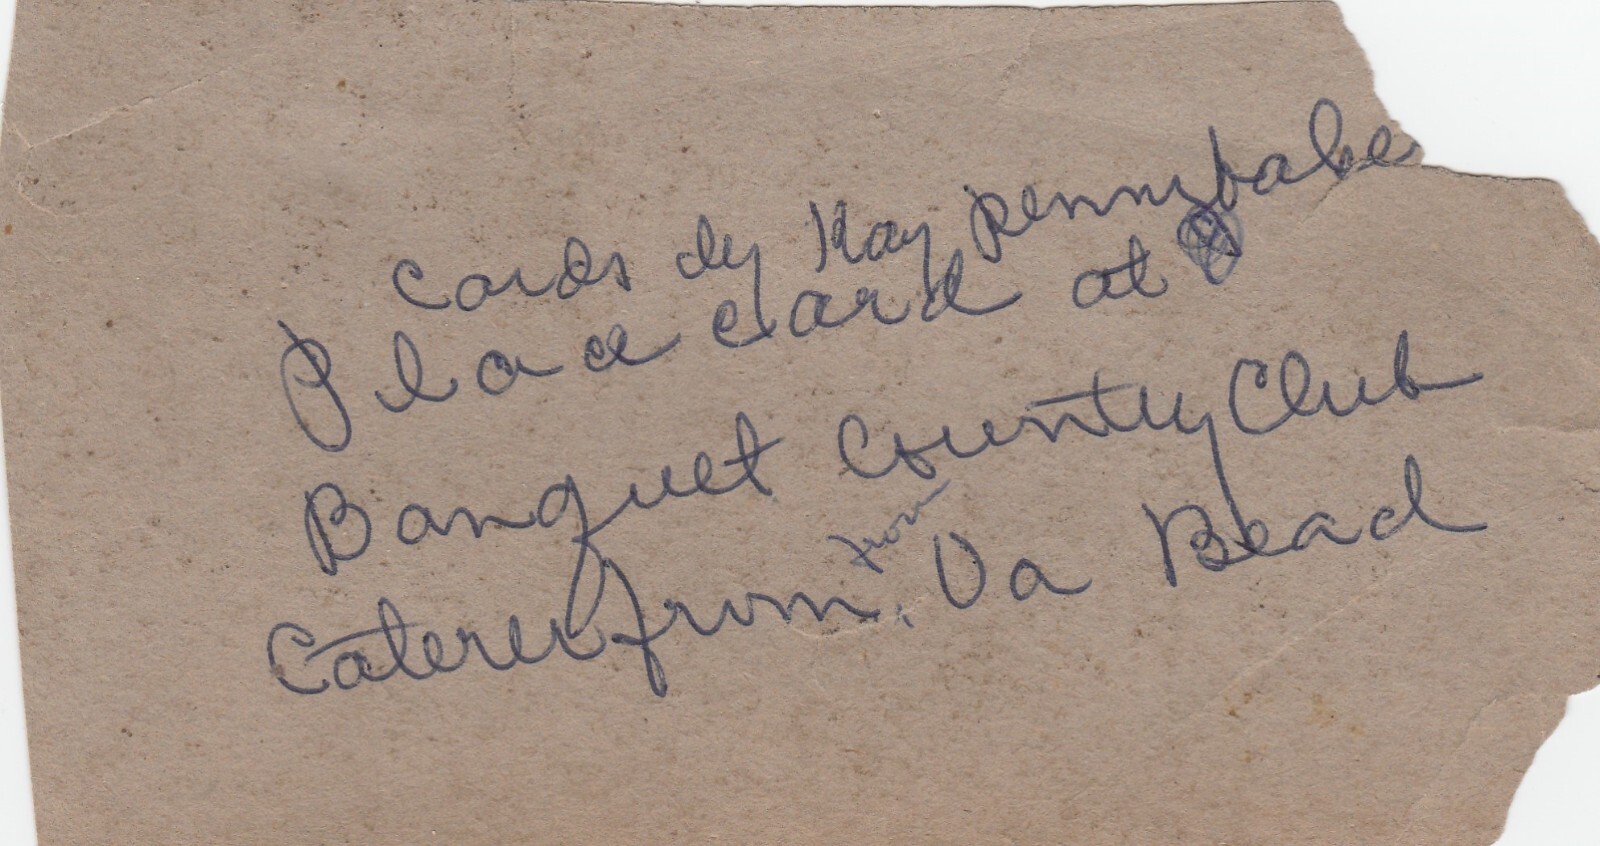 Cards by Kay Pennybake
Place card at
Banquet Country Club
from
Caterer from. Va Beach